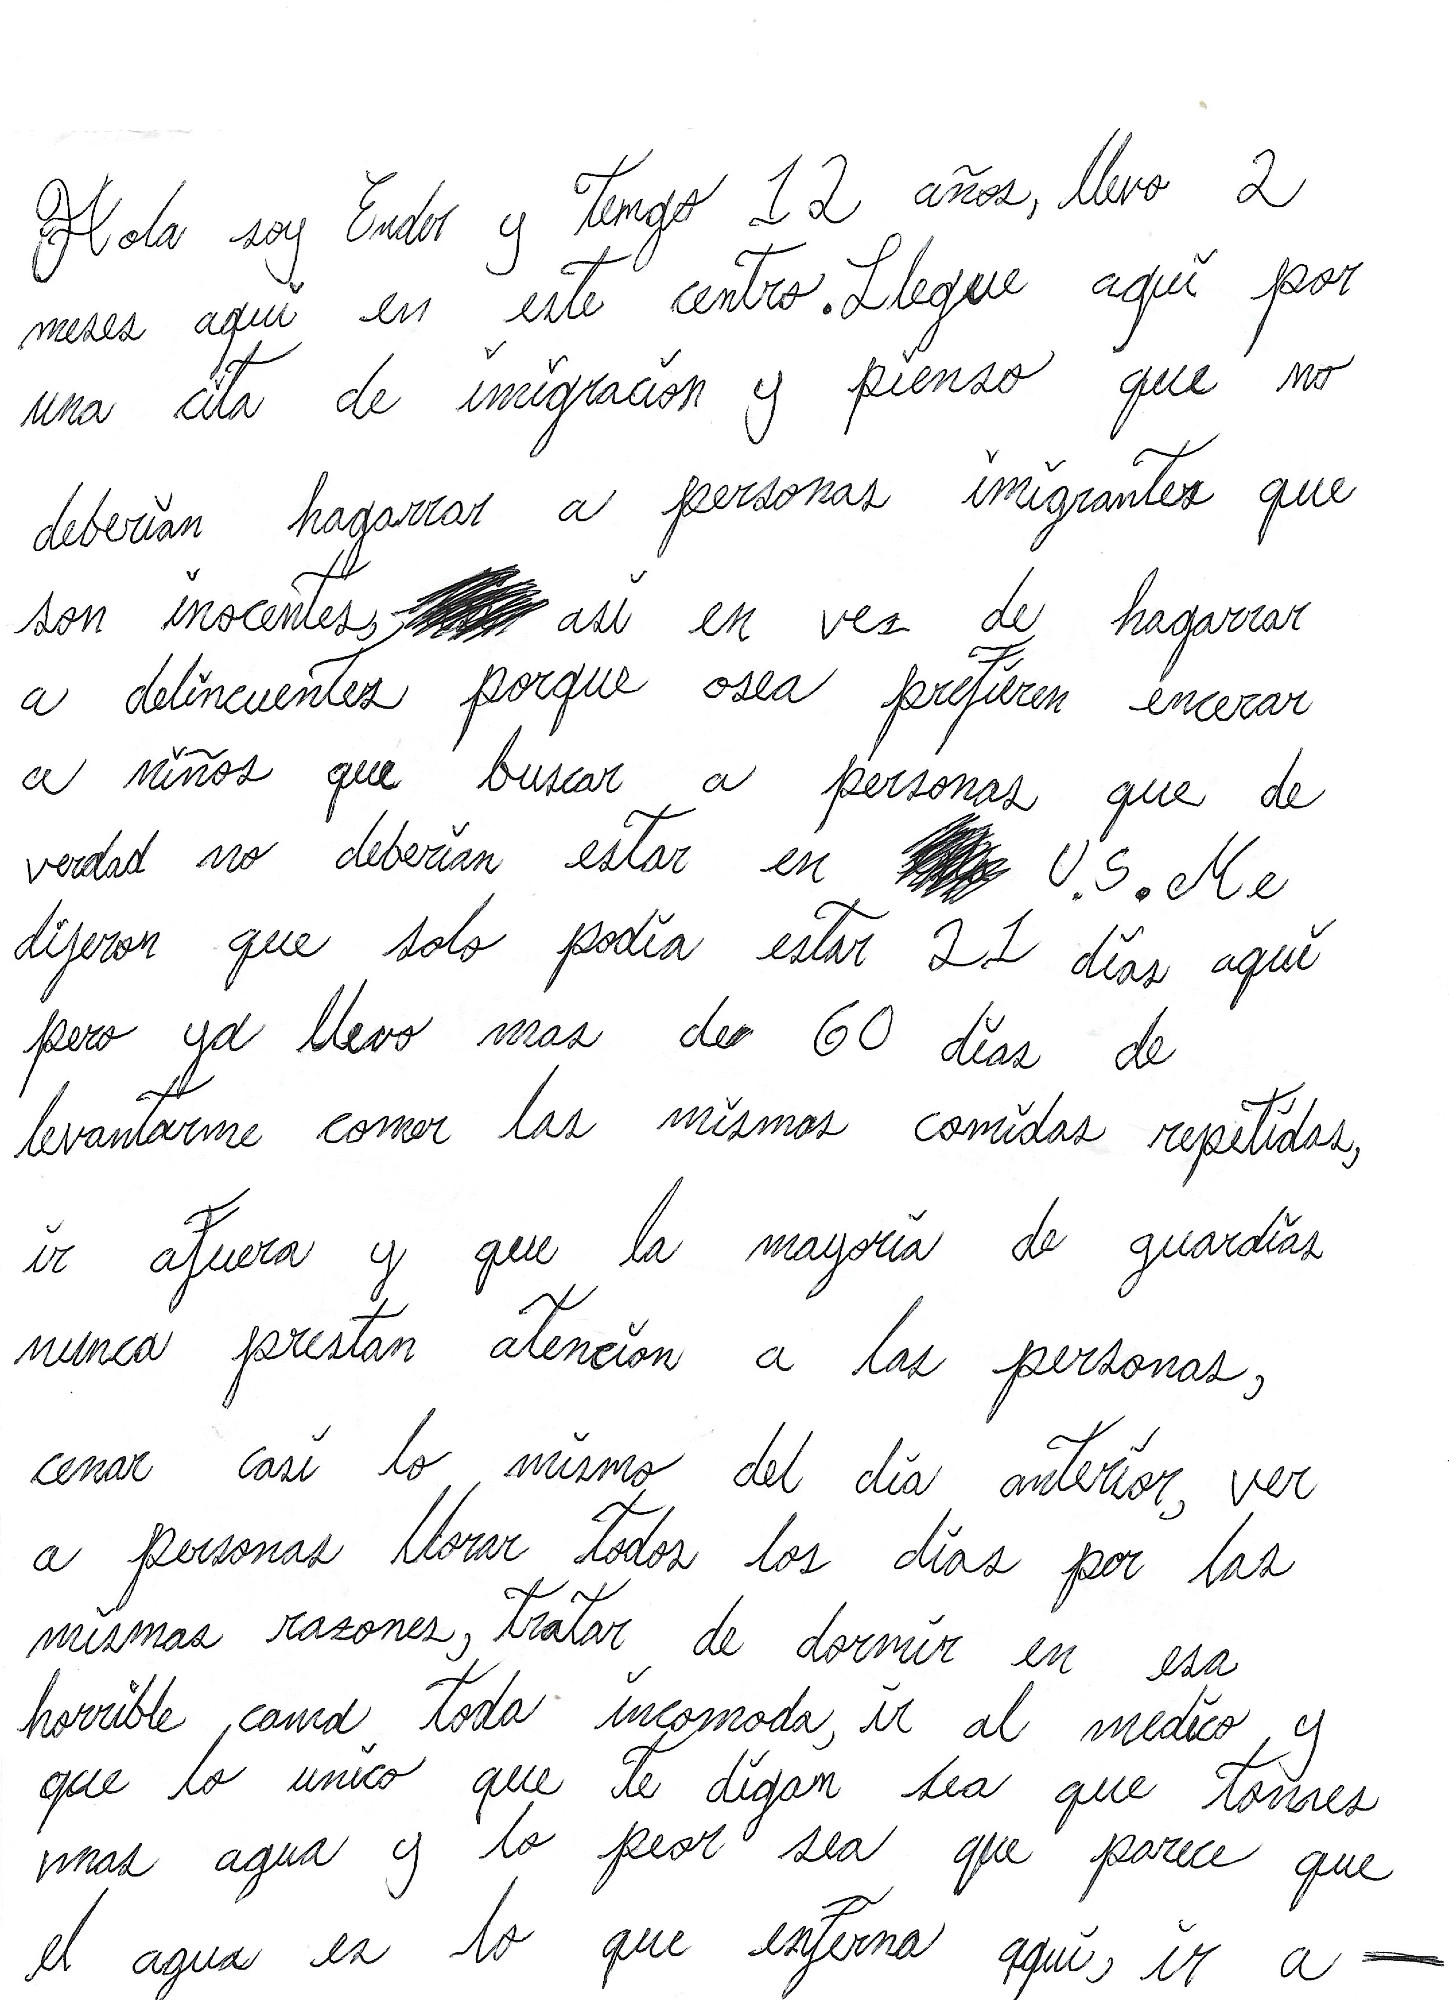 Hola soy Ender y tengo 12 años, llevo 2
meses aqui en este centro. Llegue aqui por
una cita de imigracion y pienso que no
deberian hagarrar a personas imigrantes que
son inocentes, asi en vez de hagarrar
a delincuentes porque osea prefieren encerar
a niños que buscar a personas que de
verdad no deberian estar en U.S. Me
dijeron que solo podia estar 21 dias aqui
pero ya llevo mas de 60 dias de
levantarme comer las mismas comidas repetidas,
ir afuera y que la mayoria de guardias
nunca prestan atencion a las personas,
cenar casi lo mismo del dia anterior, ver
a personas llorar todos los dias por las
mismas razones, tratar de dormir en esa
horrible cama toda incomoda, ir al medico y
que lo unico que te digan sea que tomes
mas agua y lo peor sea que parece que
el agua es lo que enferma aqui, ir a —